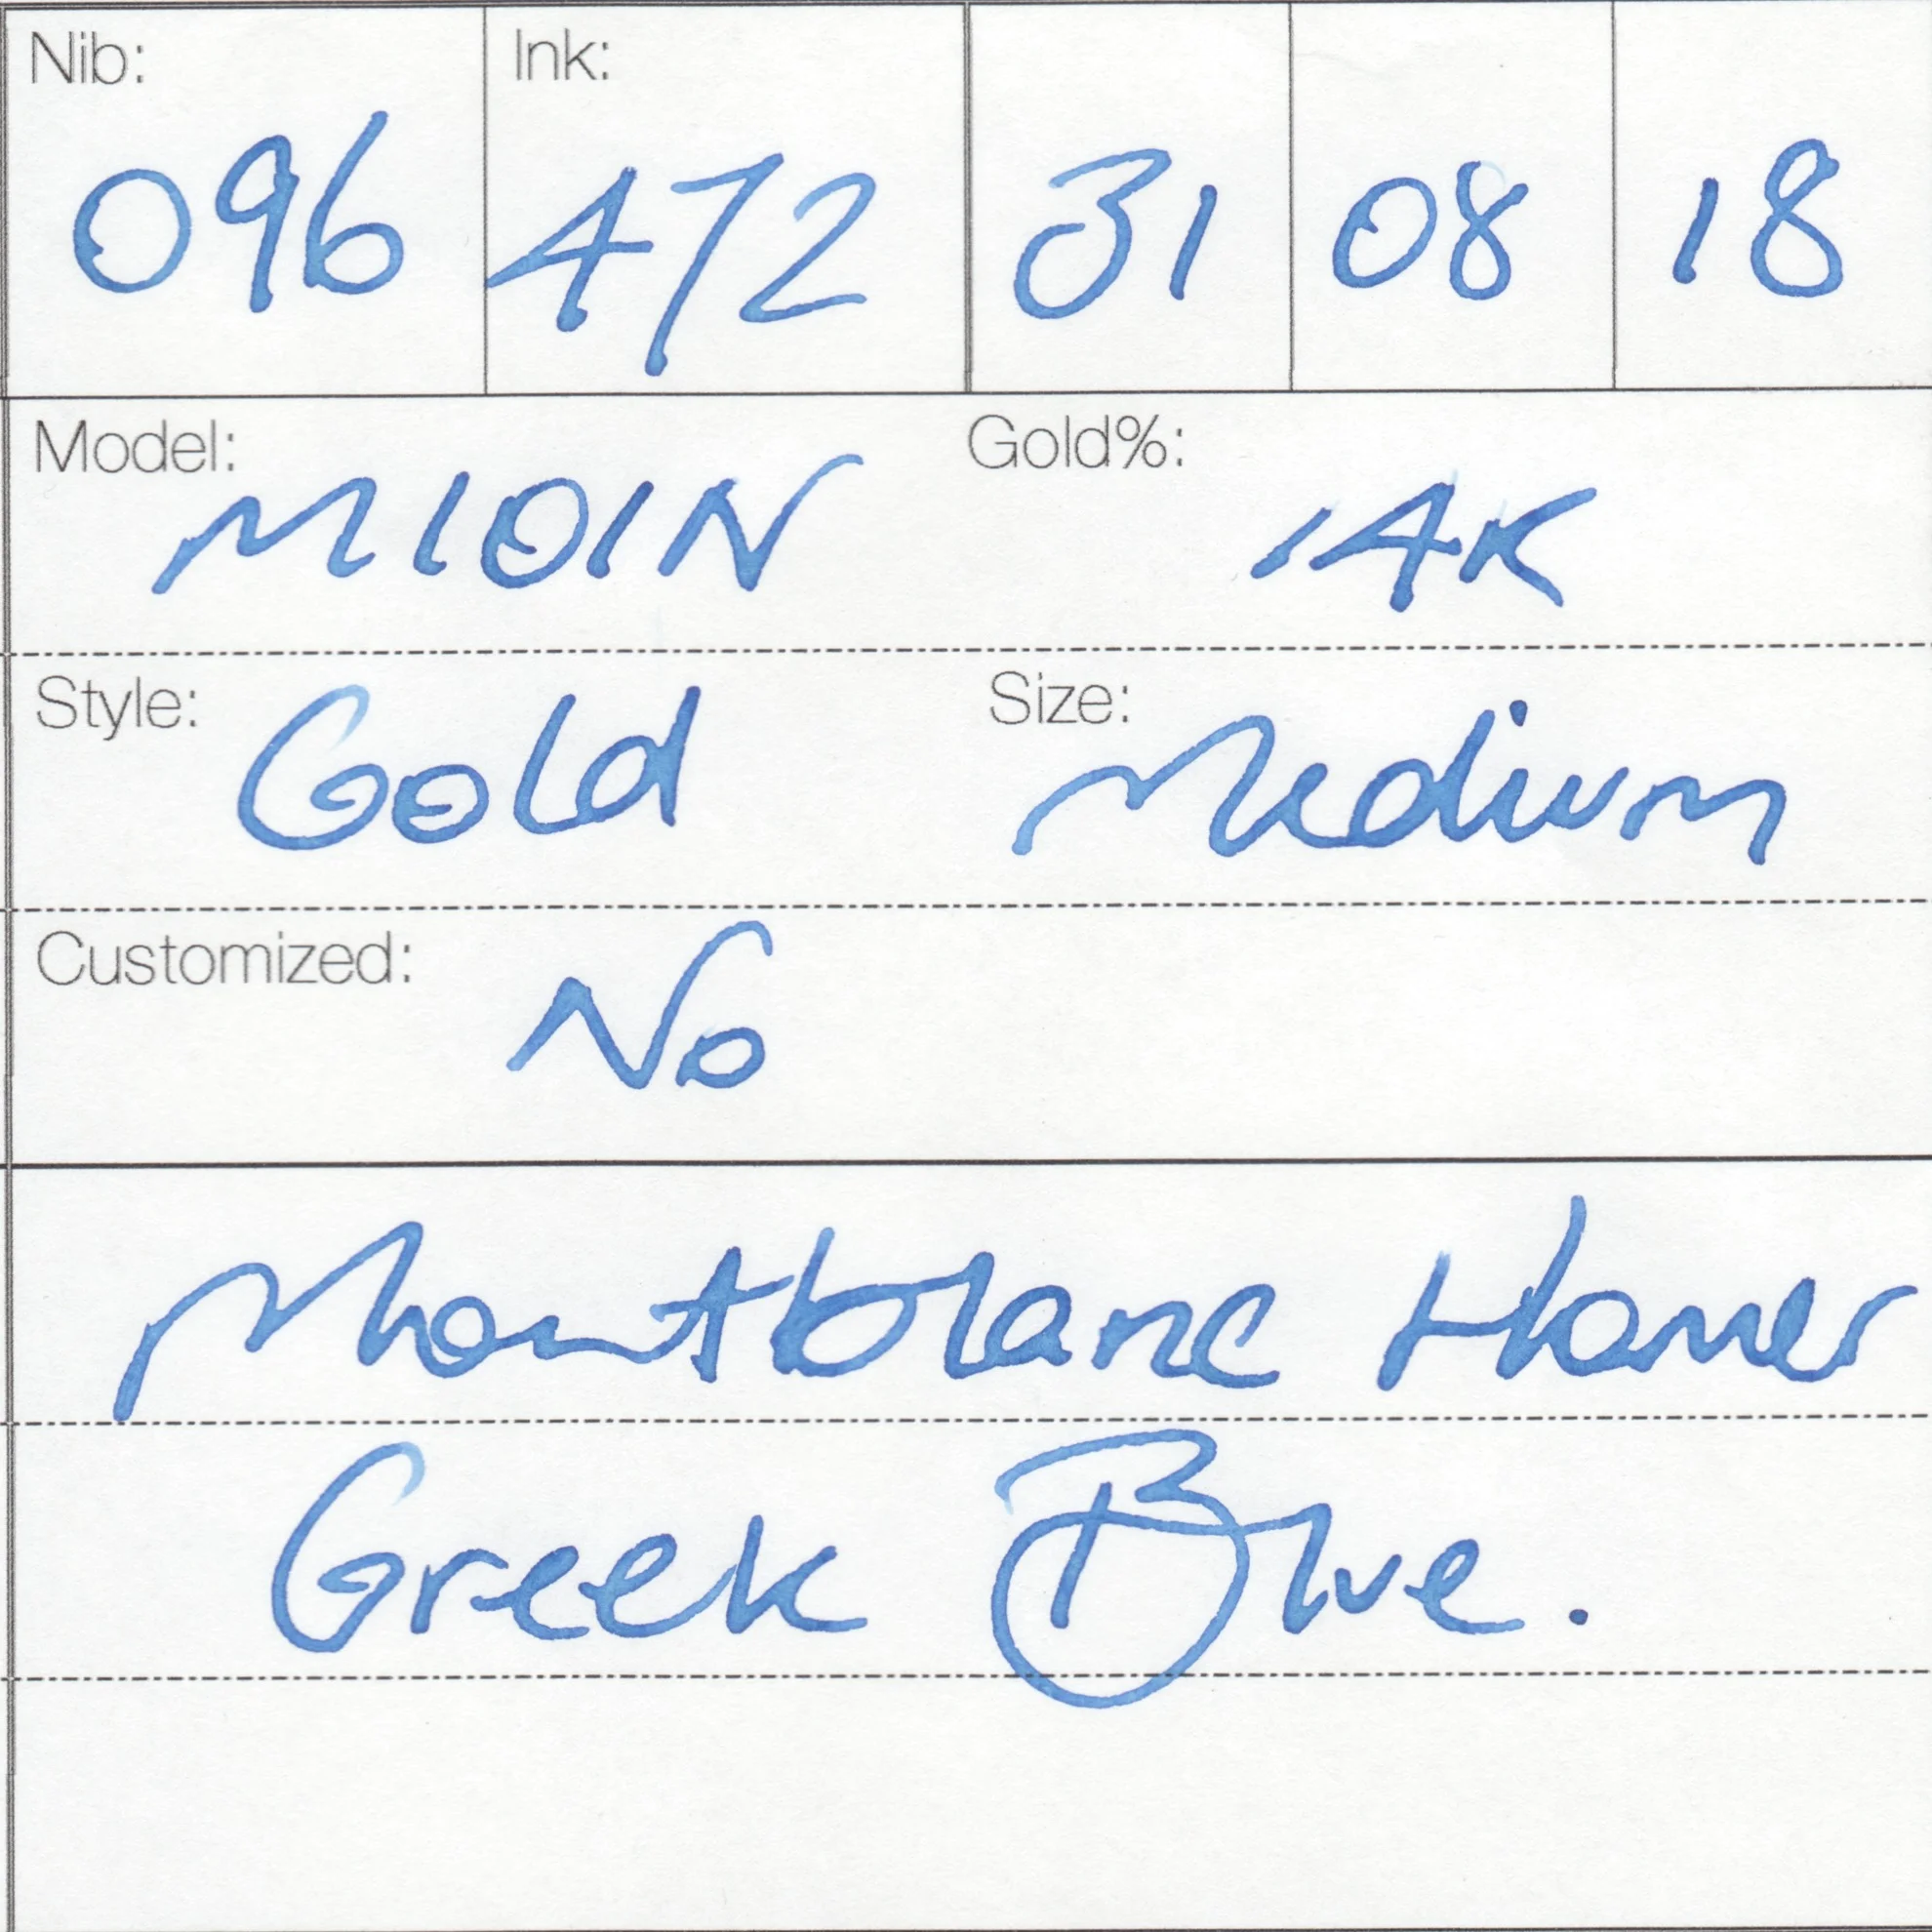 Nib: Ink:
096 472 31 08 18
Model: M101N Gold%: 14K
Style: Gold Size: Medium
Customized: No
Montblanc Homer
Greek Blue.